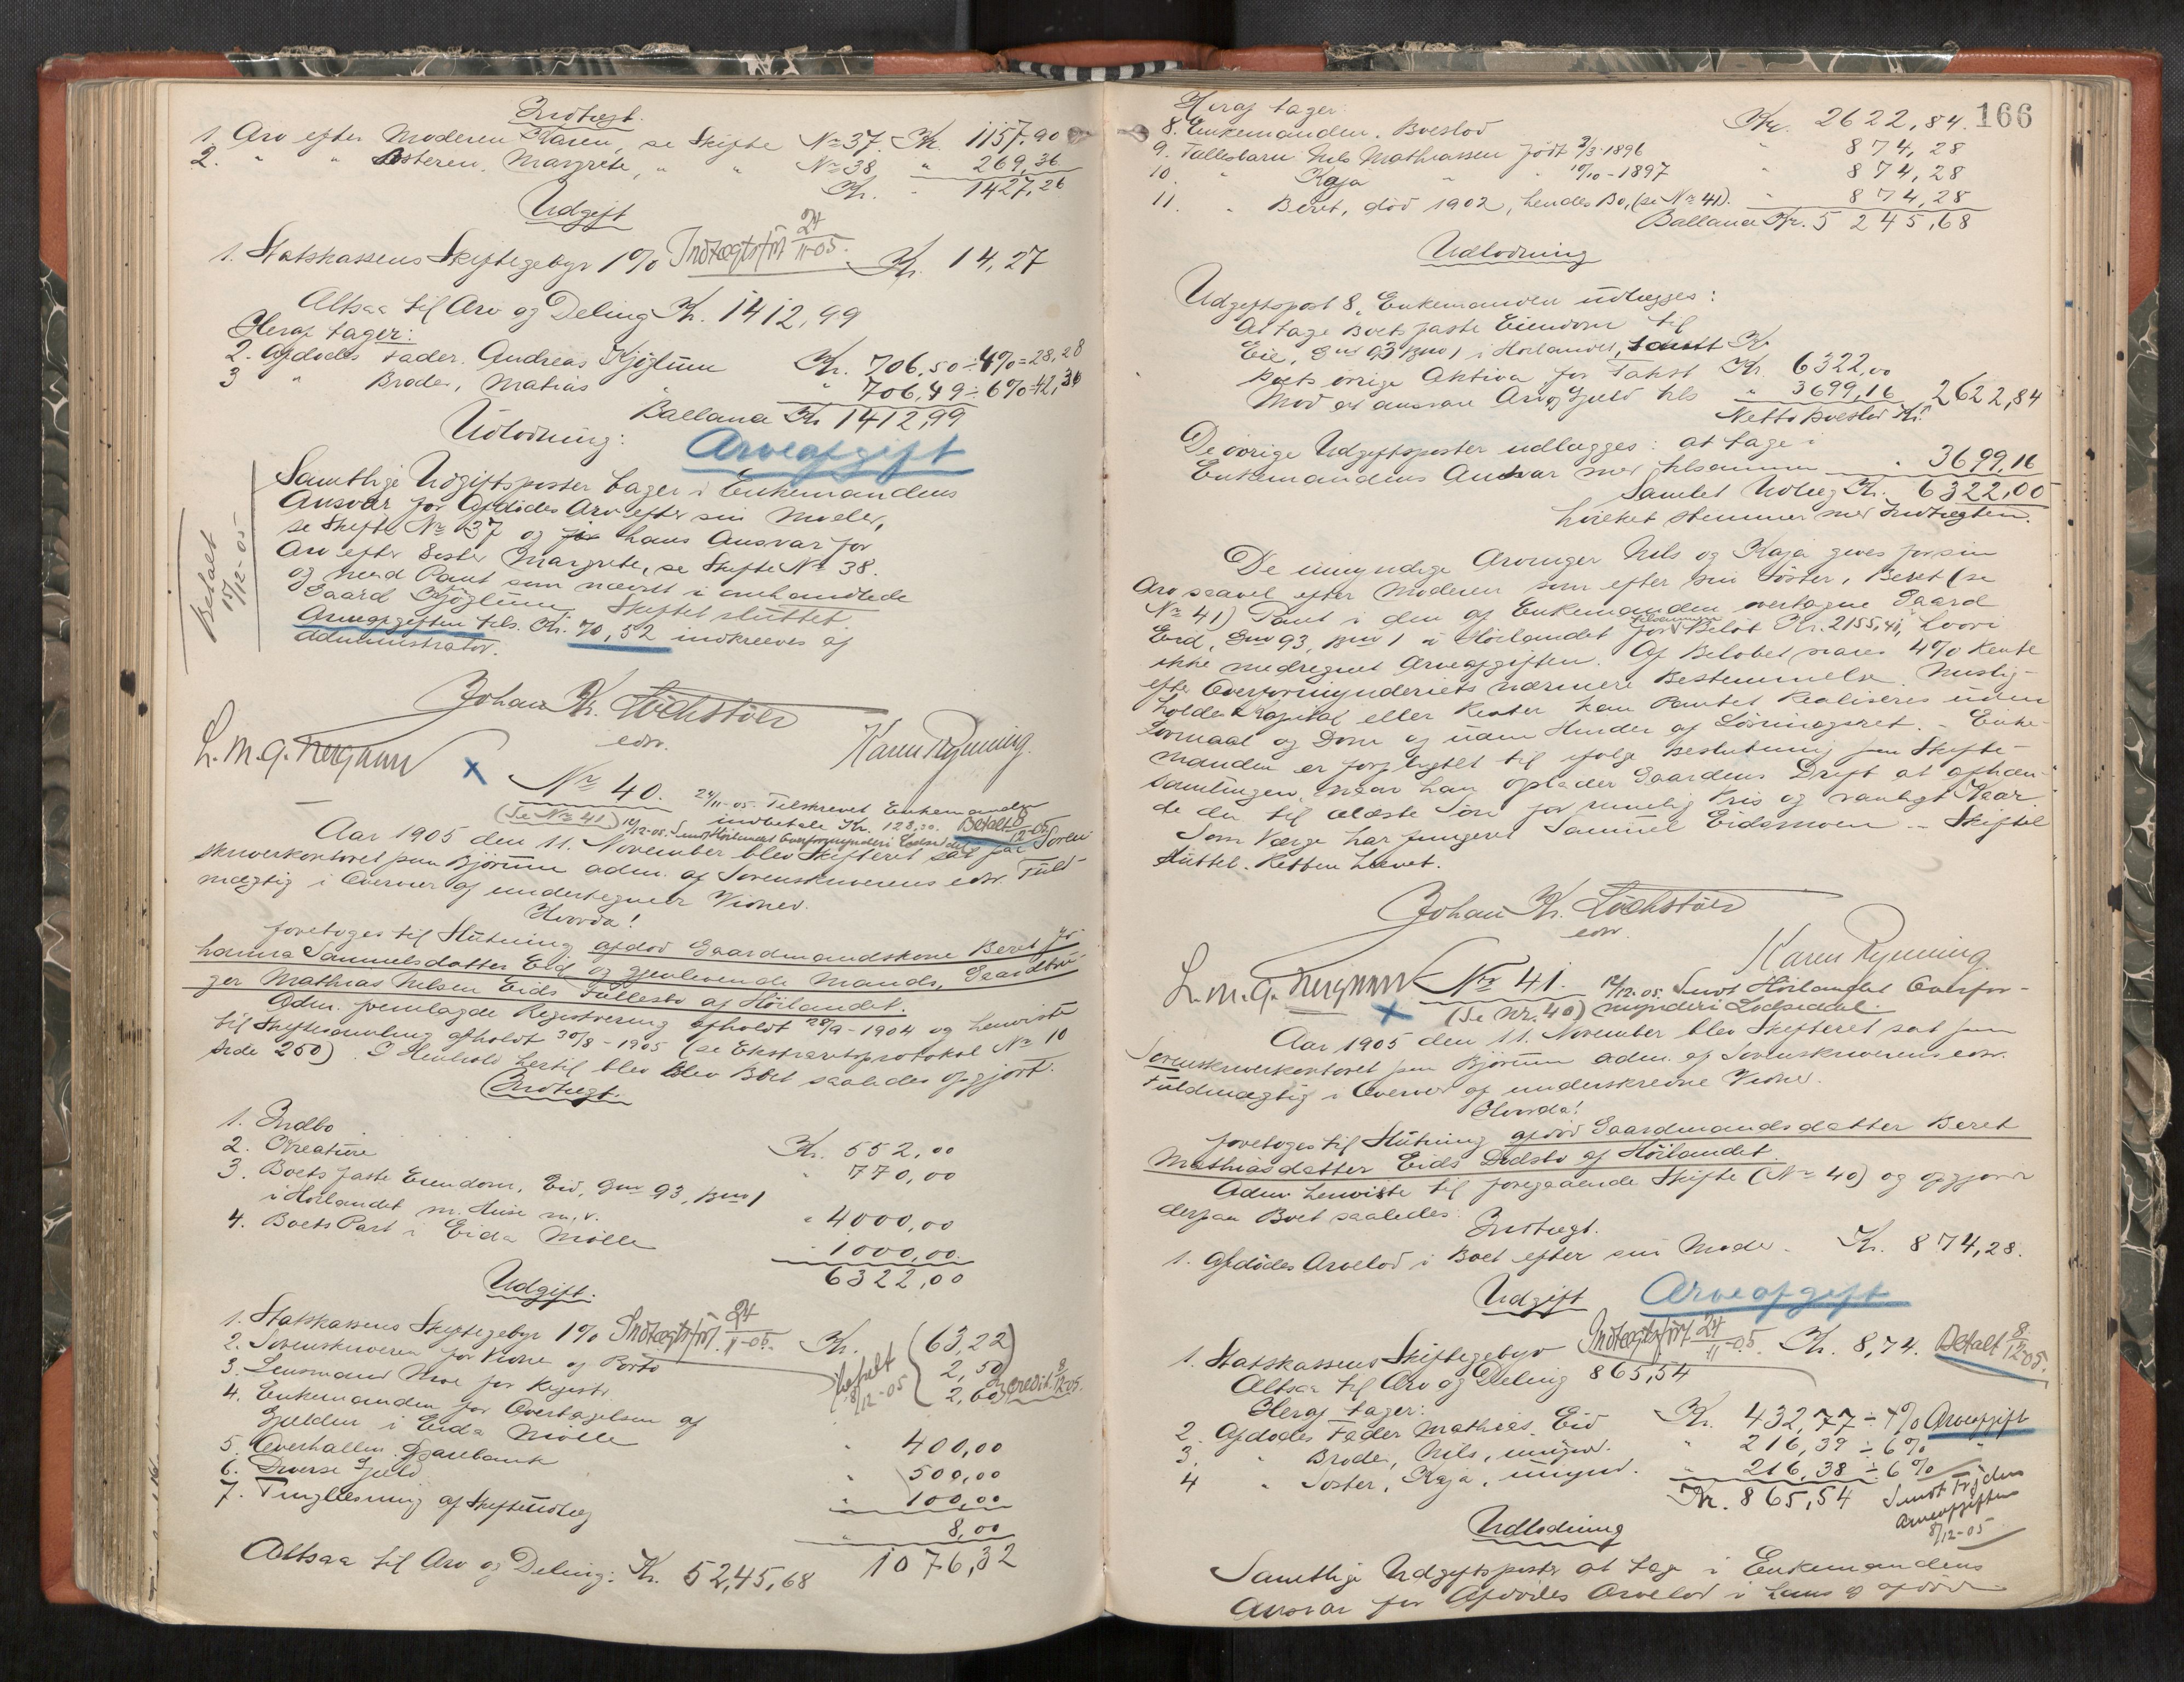 Indtægt.
1. Arv efter Moderen Karen, se Skifte No 37. Kr. 1157.90
2. " " Søsteren, Margrete, " " No 38 " 269,36
Kr. 1427,26
Udgift
1. Statskassens Skiftegebyr 1% Indtægtsført 24/11-05. Kr. 14,27
Altsaa til Arv og Deling Kr. 1412,99
Heraf tager:
2. Afdødes Fader. Andreas Kjøglum Kr. 706,50 ÷ 4% = 28,28
3 " Broder, Matias " 706,49 ÷ 6% = 42,36
Ballance Kr 1412,99
Udlodning: Arveafgift
Samtlige Udgiftsposter tages i Enkemandens
Ansvar for Afdødes Arv efter sin Moder,
se Skifte No 37 og for hans Ansvar for
Arv efter Søster Margrete, se Skifte No 38.
og med Pant som nævnt i omhandlede
Gaard Kjøglum. Skiftet sluttet.
Arveafgiften tils. Kr. 70,52 indkræves af
Administrator.
Betalt 15/12-05
Johan Kr. Lüchstöer
edsv.
Karen Rynning.
L. M. G.
x No 40. 24/11-05. Tilskrevet Enkemanden
(Se No 41) indbetale Kr. 123,20. Betalt 8/12-05
12/12-05. Sendt Höilandet Overformynderi Lodseddel
Aar 1905 den 11. November blev Skifteret sat paa Soren-
skriverkontoret paa Bjørum adm. af Sorenskriverens edsv. Fuld-
mægtig i Overvær af undertegnede Vidner.
Hvorda!
foretoges til Slutning afdød Gaardmandskone Beret Jo-
hanna Samuelsdatter Eid og gjenlevende Mands, Gaardbru-
ger Mathias Nilsen Eids Fællesbo af Höilandet.
Adm. fremlagde Registrering afholdt 28/9-1904 og henviste
til Skiftesamling afholdt 30/8-1905 (se Ekstraretsprotokol No 10
Side 250). I Henhold hertil blev blev Boet saaledes opgjort.
Indtægt.
1. Indbo Kr. 552,00
2. Kreature " 770,00
3. Boets faste Eiendom, Eid, Gno 93, Bno 1
i Höilandet m. Huse m. v. " 4000,00
4. Boets Part i Eida Mølle " 1000,00.
6322,00
Udgift.
1. Statskassens Skiftegebyr 1% Indtægtsført. 24/11-05. Kr. 63,22
2. Sorenskriveren for Vidne og Porto 2,50
3. Lensmand Moe for Registr. 2,60 Credit. 9/12-05.
betalt 8/12-05
4. Enkemanden for Overtagelsen af
Gjælden i Eida Mølle " 400,00
5. Overhallen Sparebank " 500,00
6. Diverse Gjæld " 100,00
7. Tinglæsning af Skifteudlæg " 8,00
1076,32
Altsaa til Arv og Deling: Kr. 52,45,68
166
Heraf tager:
8. Enkemanden. Boeslod Kr. 2622,84.
9. Fællesbarn Nils Mathiassen født 2/3-1896 " 874,28
10. " Kaja " " 10/10-1897 " 874,28
11. " Beret, død 1902, hendes Bo, (se No 41). " 874,28
Ballance Kr. 5 245,68
Udlodning
Udgiftspost 8. Enkemanden udlægges:
At tage Boets faste Eiendom til
Eie, Gno 93 Bno 1 i Höilandet, samt
Boets øvrige Aktiva for Takst Kr. 6322,00
Mod at ansvare Arv og Gjæld tils " 3699,16
Netto Boeslod Kr. 2622,84
De øvrige Udgiftsposter udlægges: at tage i
Enkemandens Ansvar med tilsammen " 3699,16
Samlet Udlæg Kr. 6322,00
hvilket stemmer med Indtægten.
De umyndige Arvinger Nils og Kaja gives for sin
Arv saavel efter Moderen som efter sin Søster, Beret (se
No 41) Pant i den af Enkemanden overtagne Gaard
Eid, Gno 93, Bno 1 i Höilandet for tilsammen Beløb Kr. 2155,41, hvori
ikke medregnet Arveafgiften. Af Beløbet svares 4% Rente
efter Overformynderiets nærmere Bestemmelse. Mislig-
holdes Kapital eller Renter kan Pantet realiseres uden
Lovmaal og Dom og uden Hinder af Løsningsret. – Enke-
manden er forpligtet til ifølge Beslutning paa Skifte-
samlingen, naar han oplader Gaardens Drift at afhæn-
de den til ældste Søn for rimelig Pris og vanligt Kaar.
Som Værge har fungeret Samuel Eidsmoen – Skiftet
sluttet. Retten hævet.
Johan Kr. Lüchstöer
edsv.
Karen Rynning
L. M. G.
x No 41. 12/12-05. Sendt Höilandet Overfor-
(Se nr. 40) mynderi Lodseddel.
Aar 1905 den 11. November blev Skifteret sat paa
Sorenskriverkontoret paa Bjørum adm. af Sorenskriverens edsv.
Fuldmægtig i Overvær af underskrevne Vidner.
Hvorda!
foretoges til Slutning afdød Gaardmandsdatter Beret
Mathiasdatter Eids Dødsbo af Höilandet.
Adm. henviste til foregaaende Skifte (No 40) og opgjorde
derpaa Boet saaledes:
Indtægt.
1. Afdødes Arvelod i Boet efter sin Moder. Kr. 874,28.
Udgift Arveafgift
1. Statskassens Skiftegebyr Indtægtsført 24/11-05. Kr. 8,74. Betalt 8/12-05.
Altsaa til Arv og Deling 865,54
Heraf tager:
2. Afdødes Fader Mathias Eid Kr. 432,77 ÷ 4% Arveafgift
3. " Broder, Nils, umynd. " 216,39 ÷ 6% "
4 " Søster, Kaja, umynd. " 216,38 ÷ 6%
Kr. 865,54
Sendt Fogden
Arveafgiften
8/12-05
Udlodning
Samtlige Udgiftsposter at tage i Enkemandens
Ansvar for Afdødes Arvelod i hans og afdøde